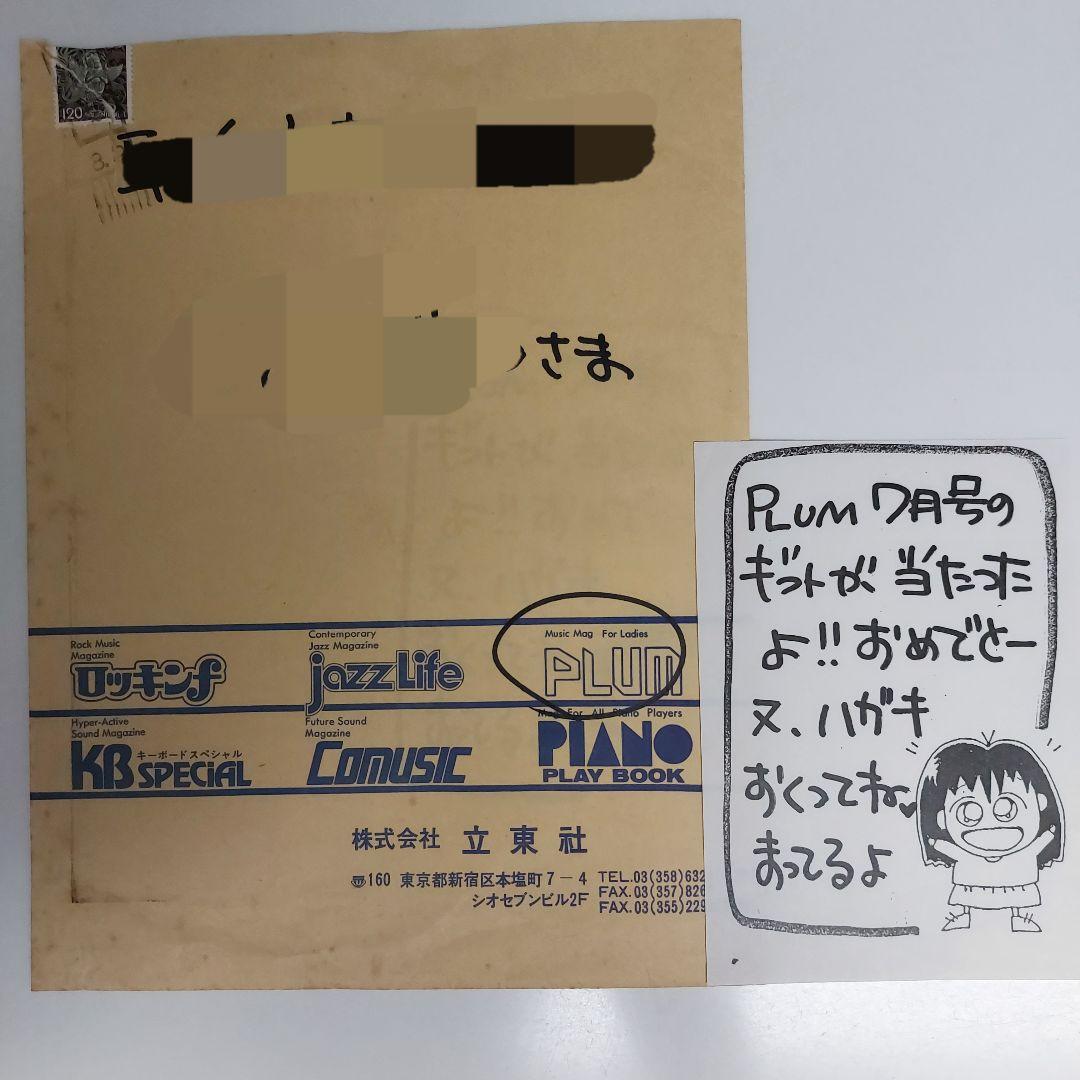 120
さま
Rock Music
Magazine
ロッキンf
Contemporary
Jazz Magazine
jazzLife
Music Mag For Ladies
PLUM
Hyper-Active
Sound Magazine
キーボードスペシャル
KB SPECIAL
Future Sound
Magazine
COMUSIC
Mag For All Piano Players
PIANO
PLAY BOOK
株式会社 立東社
〠160 東京都新宿区本塩町7-4
シオセブンビル2F
TEL.03(358)632
FAX.03(357)826
FAX.03(355)229
PLUM 7月号の
ギフトが 当たった
よ!! おめでとー
又、ハガキ
おくってね♥
まってるよ